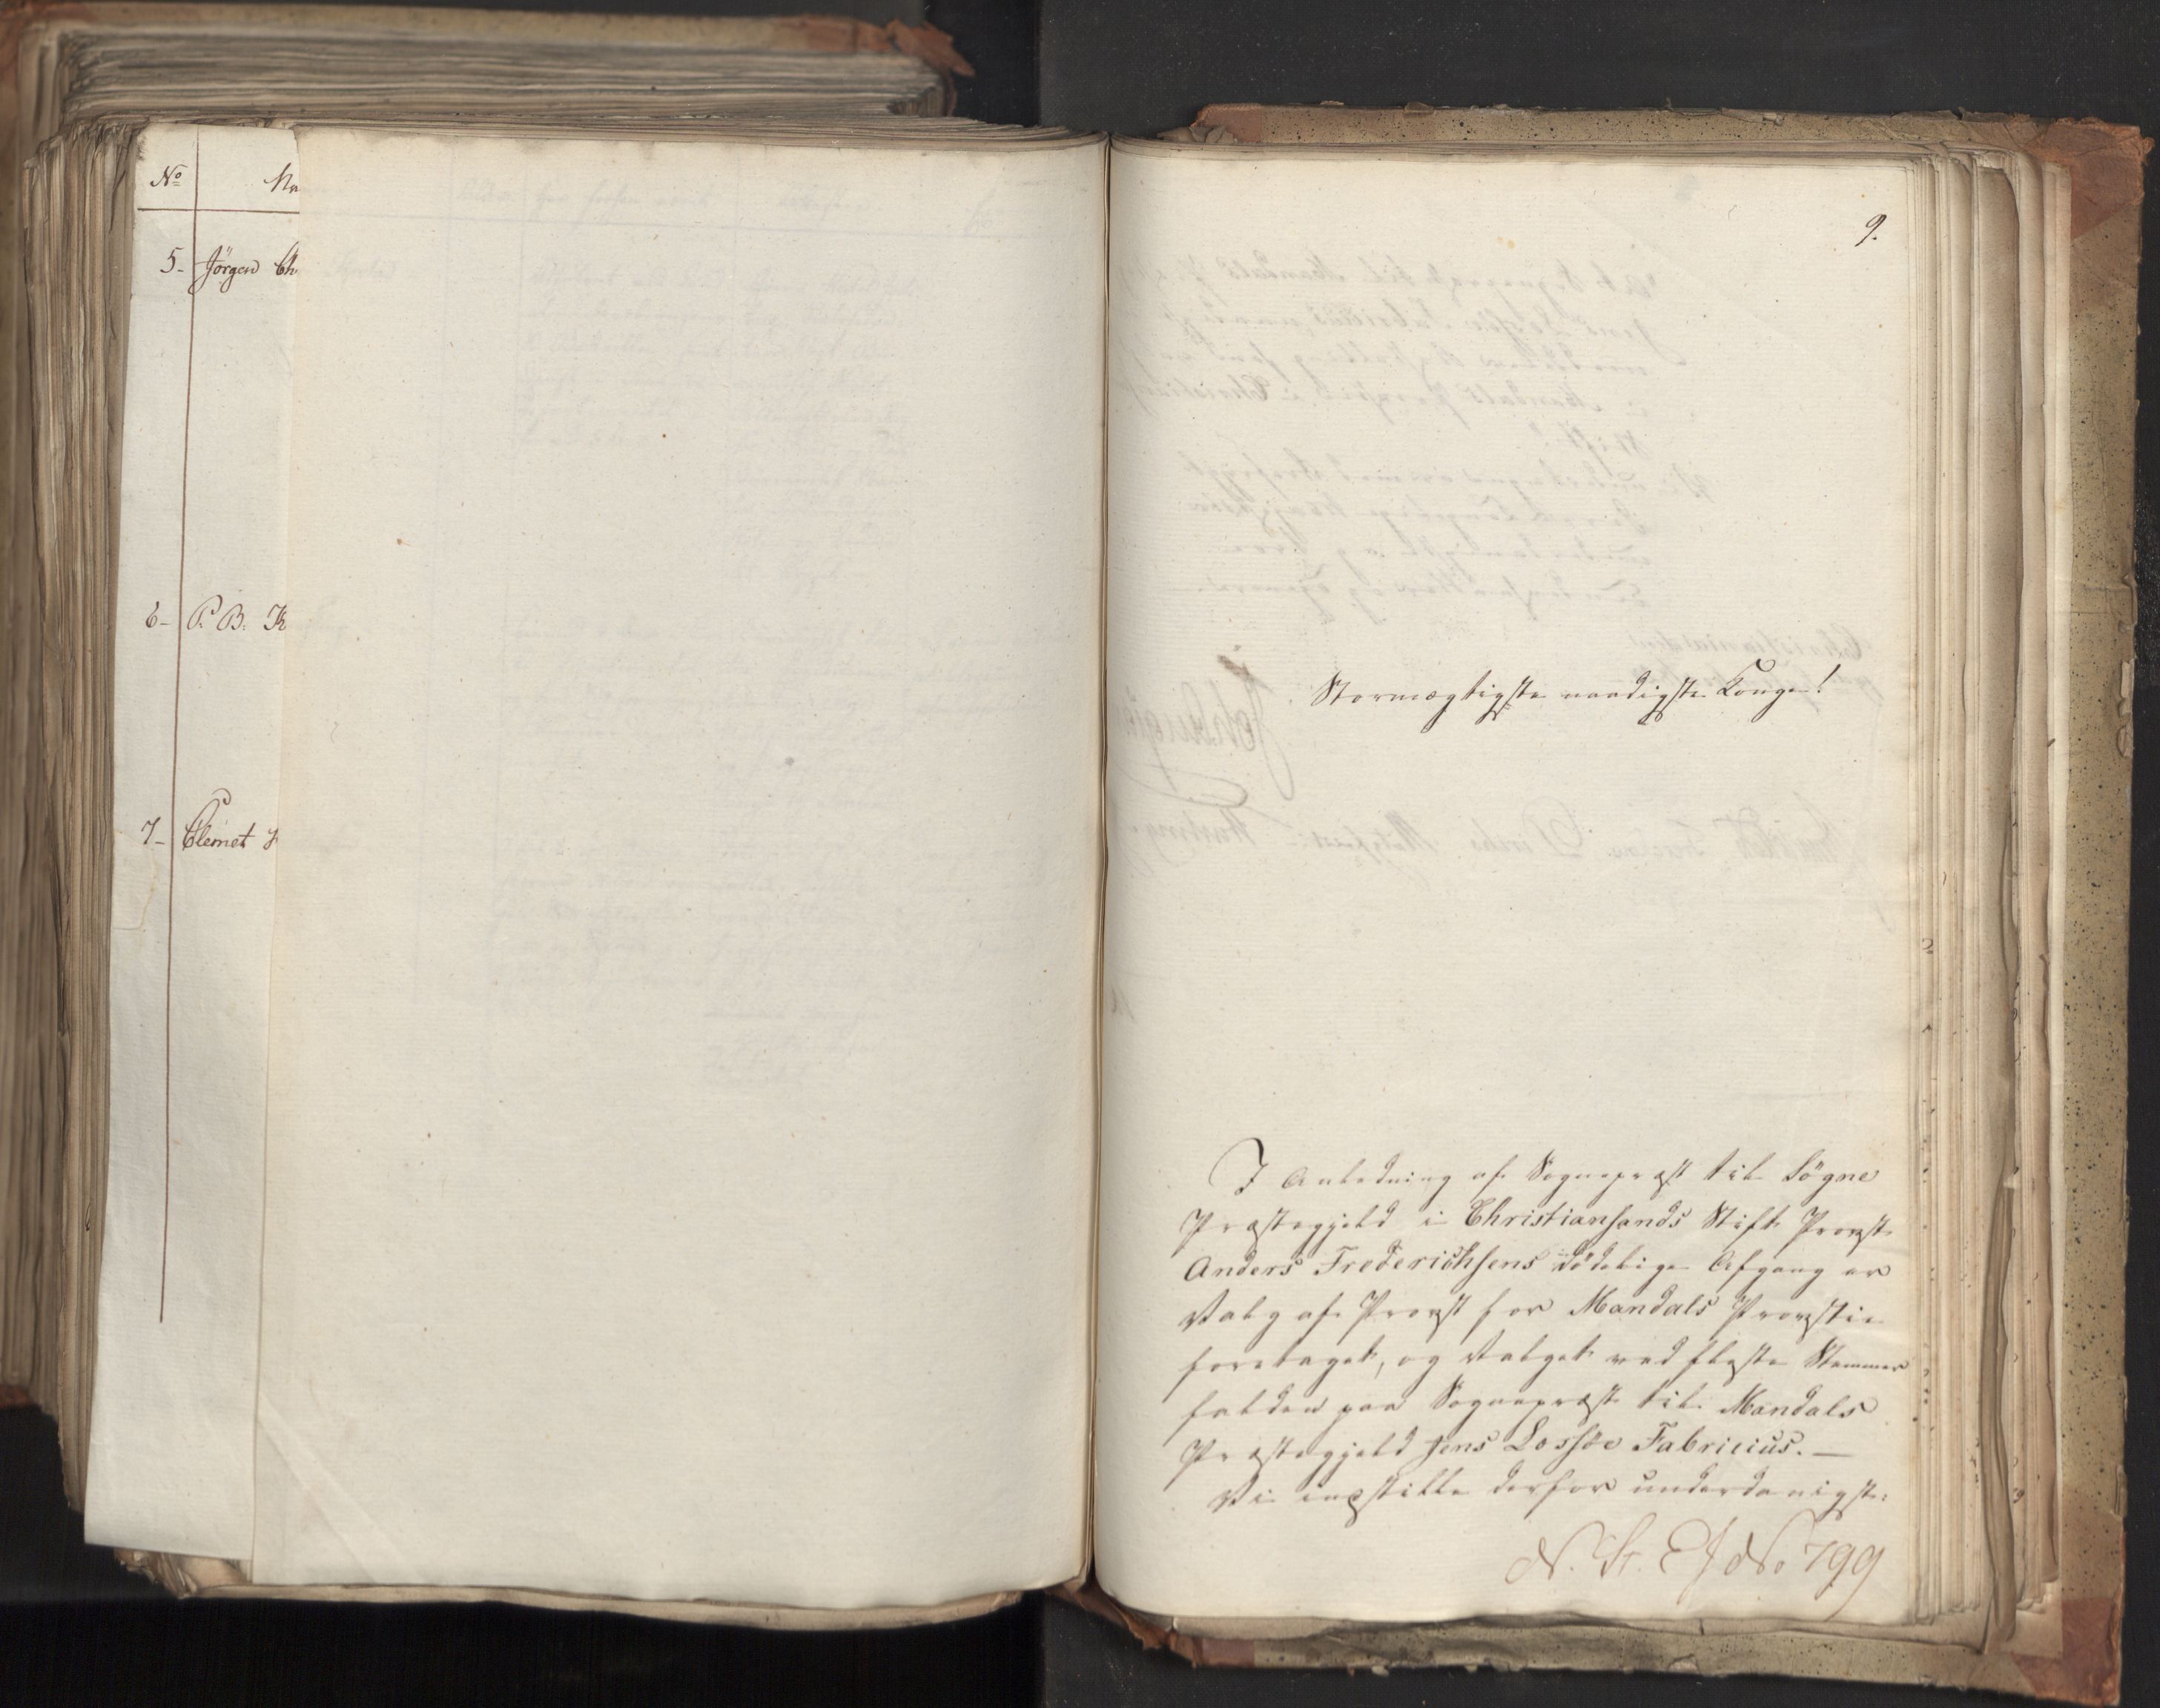 No
5 - Jörgen Ch
6 - P. B. K
7 - Clemet
9.
Stormægtigste naadigste Konge!
I Anledning af Sognepræst til Sögne
Præstegjeld i Christiansands Stift Provst
Anders Frederichsens dödelige Afgang er
Valg af Provst for Mandals Provstie
foretaget, og Valget ved fleste Stemmer
falden paa Sognepræst til Mandals
Præstegjeld Jens Lossöe Fabricius. —
Vi indstille derfor underdanigst:
N. St. E J No 799